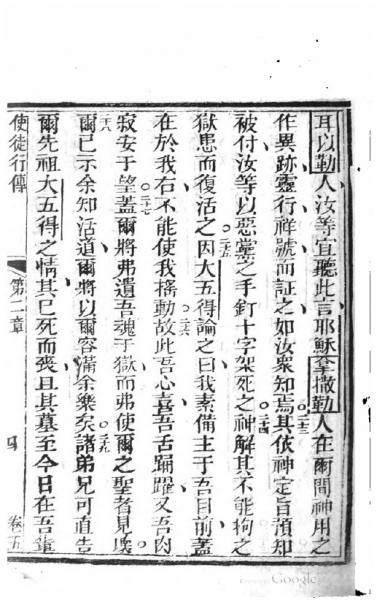 耳以勒人汝等宜聽此言耶穌拏撒勒人在爾間神用之
作異跡靈行祥號而証之如汝衆知焉二十三其依神定旨預知
被付汝等以惡黨之手釘十字架死之二十四神解其不能拘之
獄患而復活之二十五因大五得論之曰我素備主于吾目前蓋
在於我右不能使我搖動二十六故此吾心喜吾舌踊躍又吾肉
寂安于望二十七蓋爾將弗遺吾魂于獄而弗使爾之聖者見壞
二十八爾已示余知活道爾將以爾容滿余樂矣二十九諸弟兄可直告
爾先祖大五得之情其已死而喪且其墓至今日在吾輩
使徒行傳 第二章 四 卷五
Google